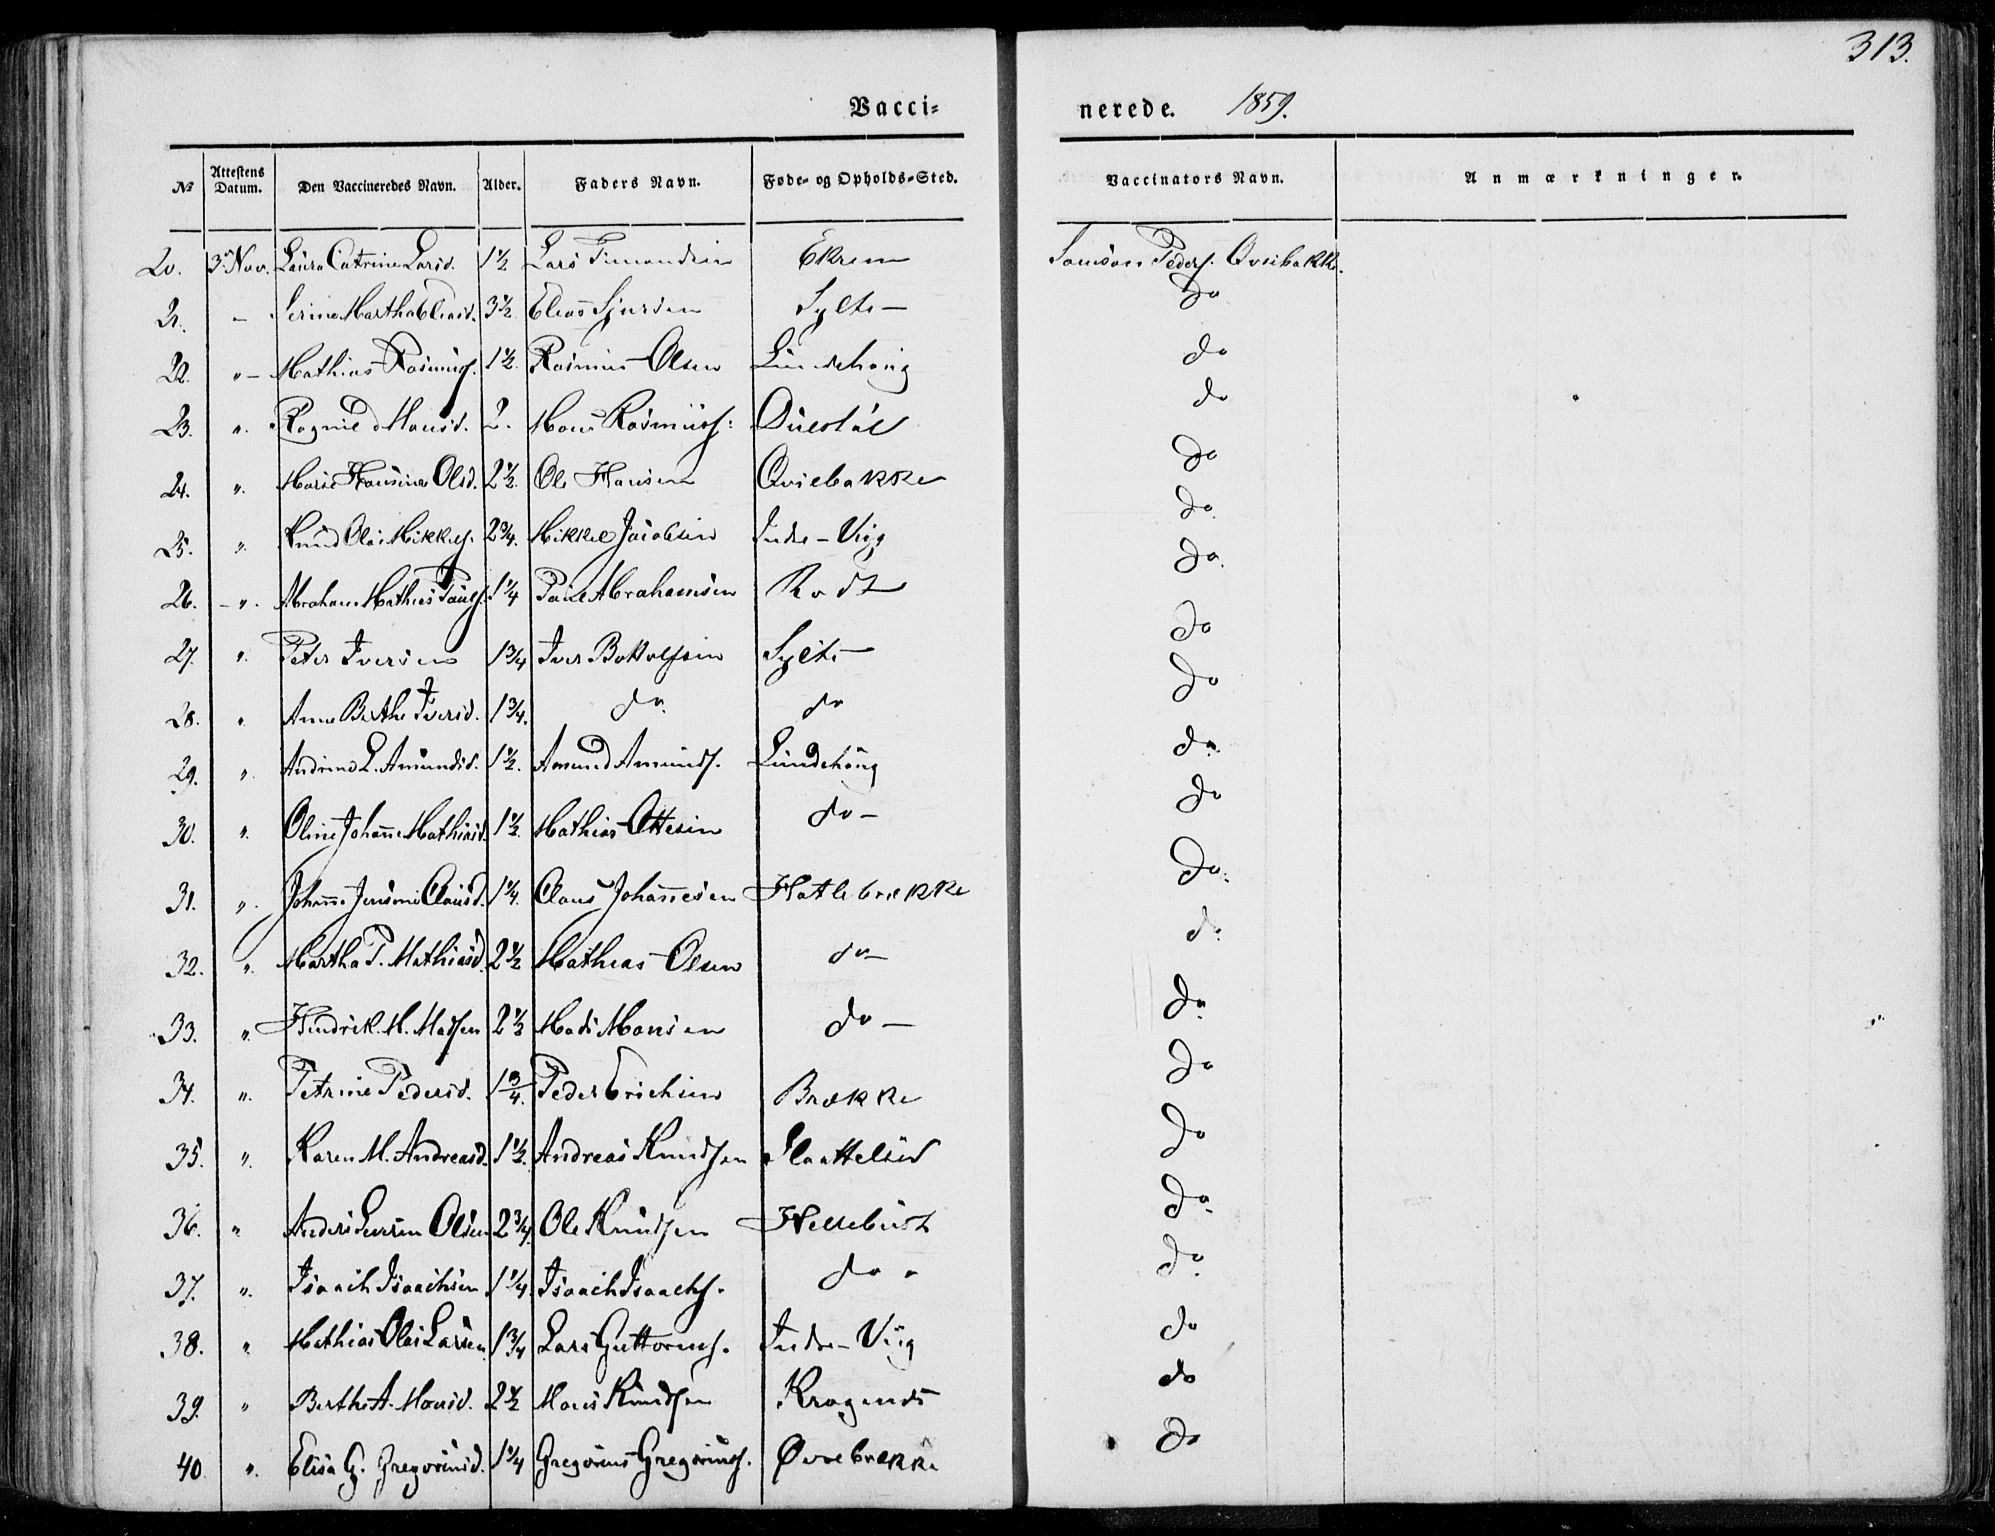 313.
Vacci-
nerede. 1859.
№ Attestens Datum. Den Vaccineredes Navn. Alder. Faders Navn. Føde- og Opholds-Sted. Vaccinators Navn. Anmærkninger.
20. 3 Nov. Laura Catrine Larsd. 1 1/2 Lars Ekrem Samson Peders. Qviebakke.
21. – Serine Martha Eliasd. 3 1/2 Elias Sjursen Sylte – do
22. " – Mathias Rasmuss. 1 1/2 Rasmus Olsen Lindehoug do
23. " Ragnild Monsd. 2. Mons Rasmuss: do
24. " Marie Hansine Olsd. 2 1/2 Ole Hansen Qviebakke do
25. " Knud Olai Mikkels. 2 3/4. Mikkel Jacobsen Indre-Viig do
26. – " Abraham Mathias Pauls. 1 1/4 Paul Abrahamsen Rødt do
27. " Peter Iversen 1 3/4 Iver Botolfsen Sylte – do
28. " Anne Berthe Iversd. 1 3/4. do do do
29. " Andrine L. Amundsd. 1 1/2. Amund Amunds. Lindehoug do
30. " Oline Johanne Mathiasd. 1 1/2. Mathias Ottesen do – do
31. " Johanne Jensine Clausd. 1 1/4. Claus Johannesen Hatlebrekke do.
32. " Martha P. Mathiasd. 2 1/2 Mathias Olsen do – do
33. " Hendrik M. Madsen 2 1/2 Mads Monsen do – do
34. " Petrine Pedersd. 1 3/4. Peder Erichsen Brække do
35. " Karen M. Andreasd. 1 1/2. Andreas Knudsen Slaattelid do
36. " Anders Olsen 2 3/4. Ole Knudsen Hellebust do
37. " Isaach Isaachsen 1 1/4. Isaach Isaachs. do " do
38. " Mathias Olai Larsen 1 3/4 Lars Guttorms. Indre-Viig do
39. " Berthe A. Monsd. 2 1/2 Mons Knudsen do
40 " Elisa G. Gregoriusd. 1 1/4 Gregorius Gregoriuss. Øvrebrække do